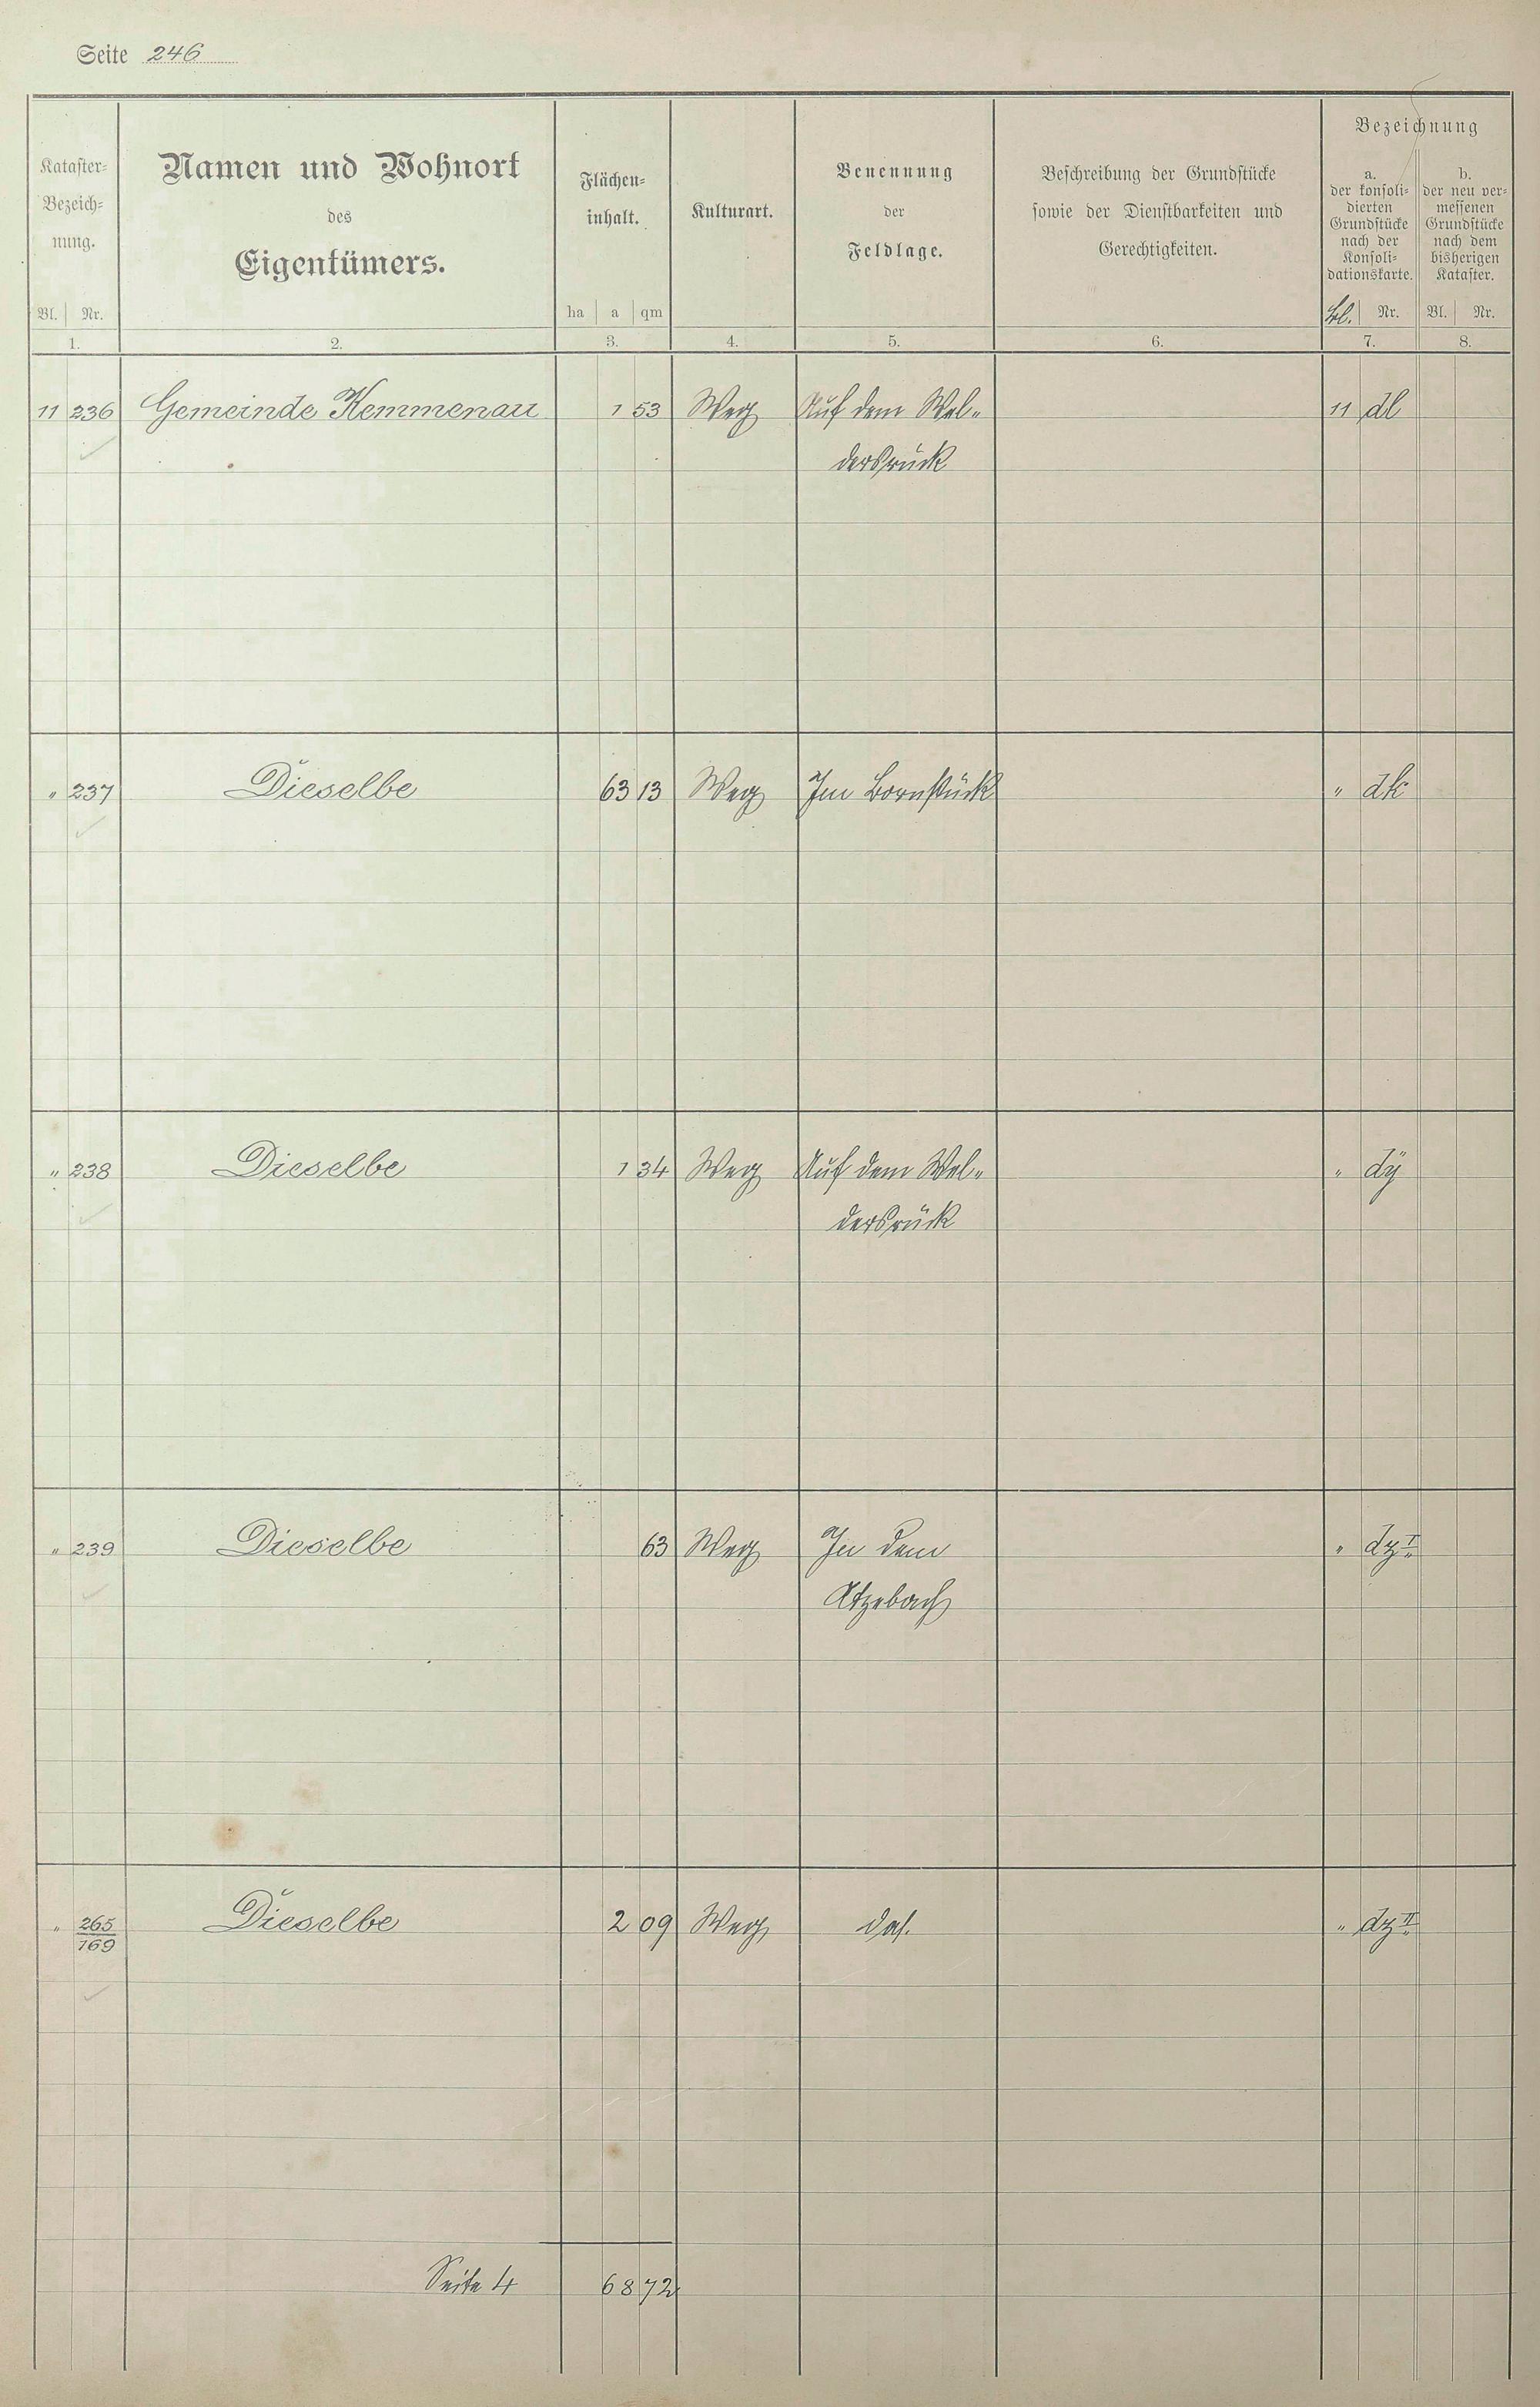 Seite 246
Kataster-
Bezeich-
nung.
Bl. Nr.
1.
Namen und Wohnort
des
Eigentümers.
2.
Flächen-
inhalt.
ha a qm
3.
Kulturart.
4.
Benennung
der
Feldlage.
5.
Beschreibung der Grundstücke
sowie der Dienstbarkeiten und
Gerechtigkeiten.
6.
Bezeichnung
a.
der konsoli-
dierten
Grundstücke
nach der
Konsoli-
dationskarte.
Bl. Nr.
7.
b.
der neu ver-
messenen
Grundstücke
nach dem
bisherigen
Kataster.
Bl. Nr.
8.
11 236 Gemeinde Kemmenau 1 53 Weg Auf dem Wel- 11 dl
dersrück
" 237 Dieselbe 63 13 Weg Im Bornstück " dk
" 238 Dieselbe 1 34 Weg Auf dem Wel- " dÿ
dersrück
" 239 Dieselbe 63 Weg In dem " dz I
Atzebach
" 265/169 Dieselbe 2 09 Weg das. " dz II
Seite 4 68 72